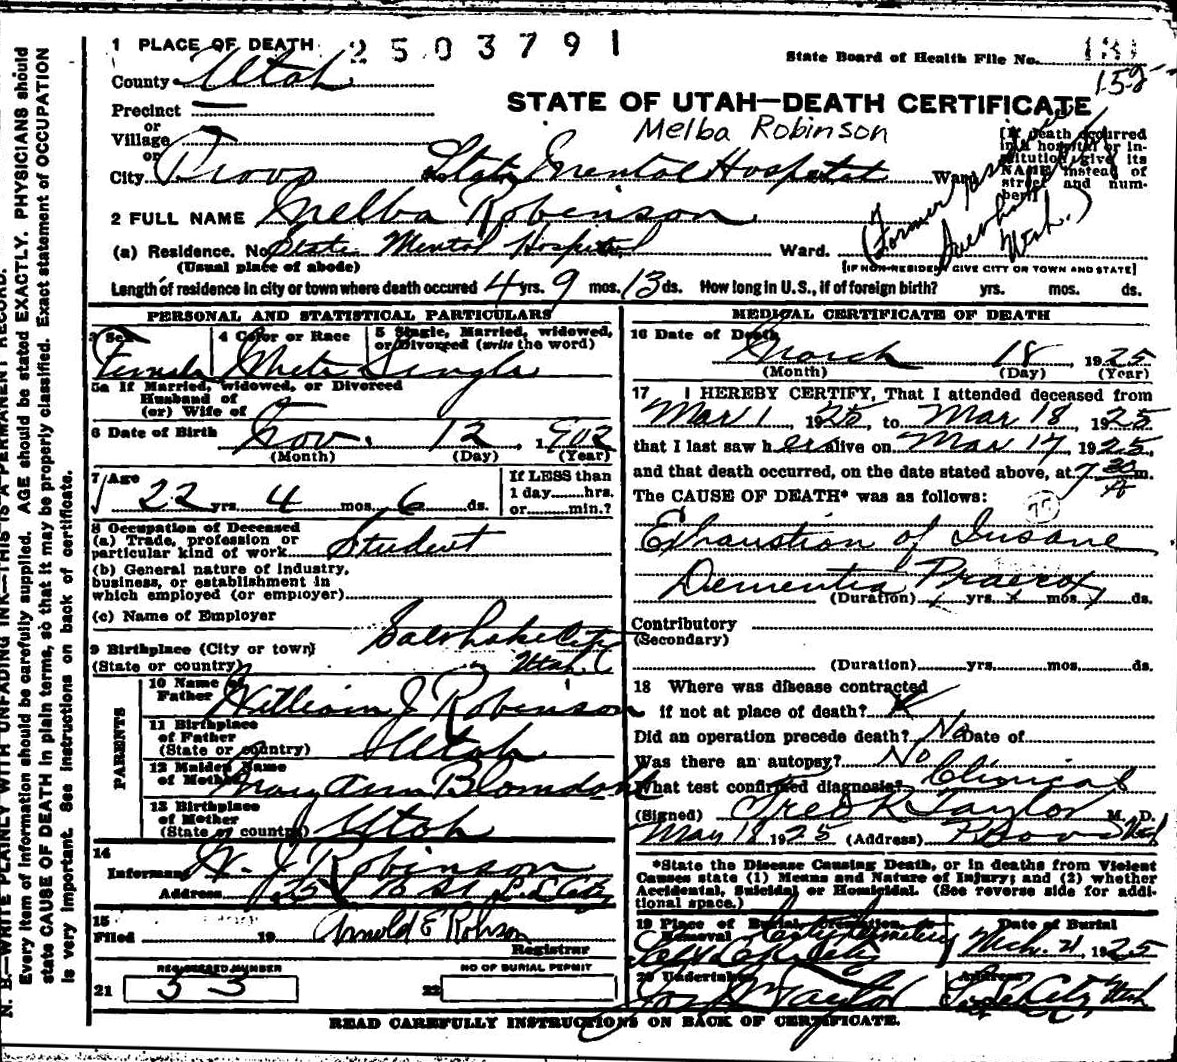 1 PLACE OF DEATH 2503791
State Board of Health File No. 131
158
County Utah
STATE OF UTAH—DEATH CERTIFICATE
Precinct —
or
Village
or
City Provo No. State Mental Hospital Ward
Melba Robinson
[If death occurred in a hospital or institution, give its NAME instead of street and number.]
2 FULL NAME Melba Robinson
(a) Residence. No. State Mental Hospital Ward.
(Usual place of abode)
[IF NON-RESIDENT GIVE CITY OR TOWN AND STATE]
Length of residence in city or town where death occured 4 yrs. 9 mos. 13 ds. How long in U.S., if of foreign birth? yrs. mos. ds.
PERSONAL AND STATISTICAL PARTICULARS
3 Sex
4 Color or Race
5 Single, Married, widowed, or Divorced (write the word)
Female White Single
5a If Married, widowed, or Divorced
Husband of
(or) Wife of
6 Date of Birth Nov. 12, 1902
(Month) (Day) (Year)
7 Age
22 yrs. 4 mos. 6 ds.
If LESS than
1 day hrs.
or min.?
8 Occupation of Deceased
(a) Trade, profession or
particular kind of work Student
(b) General nature of industry,
business, or establishment in
which employed (or employer)
(c) Name of Employer
9 Birthplace (City or town) Salt Lake City
(State or country) Utah
PARENTS
10 Name of
Father William J Robinson
11 Birthplace
of Father
(State or country) Utah
12 Maiden Name
of Mother Mary Ann
13 Birthplace
of Mother
(State or country) Utah
14
Informant W. J. Robinson
Address
15
Filed 19 Arnold E Robison
Registrar
REGISTERED NUMBER
21 53
NO OF BURIAL PERMIT
22
MEDICAL CERTIFICATE OF DEATH
16 Date of Death
March 18, 1925
(Month) (Day) (Year)
17 I HEREBY CERTIFY, That I attended deceased from
Mar 1, 1925, to Mar 18, 1925.
that I last saw her alive on Mar 17, 1925,
and that death occurred, on the date stated above, at 7 30 A m.
The CAUSE OF DEATH* was as follows:
Exhaustion of Insane
Dementia Praecox
(Duration) yrs. mos. ds.
Contributory
(Secondary)
(Duration) yrs. mos. ds.
18 Where was disease contracted
if not at place of death? X
Did an operation precede death? No Date of
Was there an autopsy? No
What test confirmed diagnosis? Clinical
(Signed) Fred R Taylor M. D.
Mar 18 1925 (Address) Provo Utah
*State the Disease Causing Death, or in deaths from Violent
Causes state (1) Means and Nature of Injury; and (2) whether
Accidental, Suicidal or Homicidal. (See reverse side for addi-
tional space.)
19 Place of Burial, Cremation or Removal
Date of Burial
City Cemetery
Salt Lake City Mch. 21, 1925
20 Undertaker
Address
Taylor S. L. City Utah
READ CAREFULLY INSTRUCTIONS ON BACK OF CERTIFICATE.
N. B.—WRITE PLAINLY WITH UNFADING INK—THIS IS A PERMANENT RECORD.
Every item of information should be carefully supplied. AGE should be stated EXACTLY. PHYSICIANS should
state CAUSE OF DEATH in plain terms, so that it may be properly classified. Exact statement of OCCUPATION
is very important. See instructions on back of certificate.